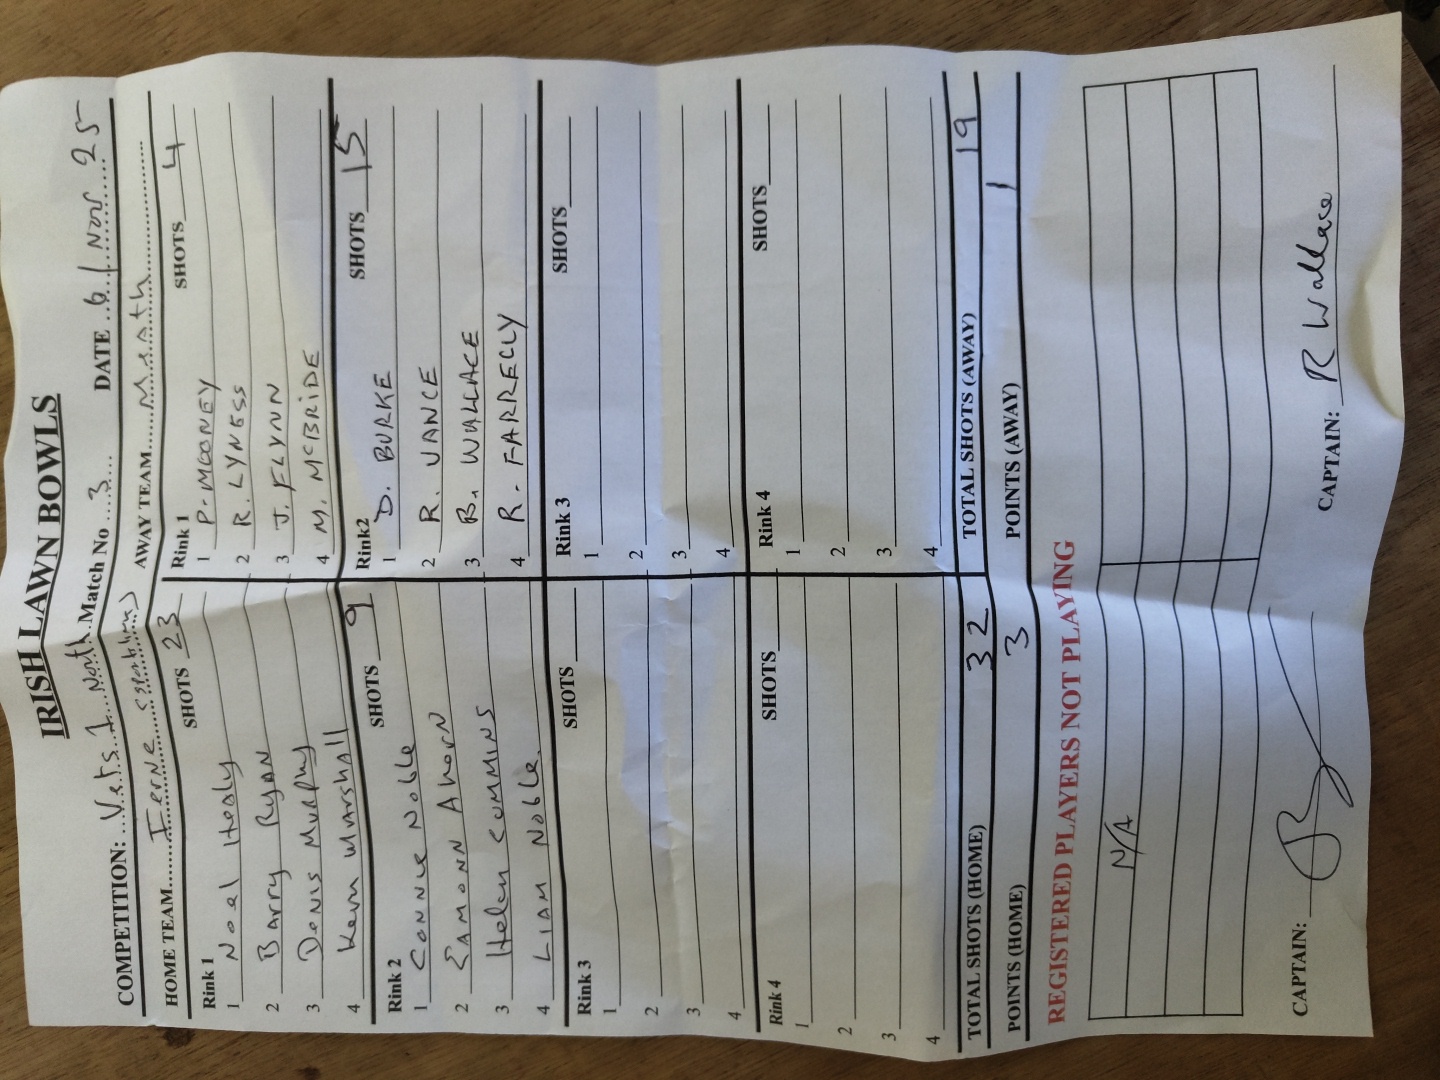 IRISH LAWN BOWLS
COMPETITION: Vets 1 North Match No 3 DATE 6 / Nov 25
HOME TEAM Ierne AWAY TEAM Meath
Rink 1 SHOTS 23 Rink 1 SHOTS 4
1 Noel Healy 1 P. MOONEY
2 Barry Ryan 2 R. LYNESS
3 Denis Murphy 3 J. FLYNN
4 Kevin Marshall 4 M. McBRIDE
Rink 2 SHOTS 9 Rink2 SHOTS 15
1 CONNIE NOBLE 1 D. BURKE
2 EAMONN AHERN 2 R. VANCE
3 Helen CUMMINS 3 B. WALLACE
4 LIAM NOBLE 4 R. FARRELLY
Rink 3 SHOTS Rink 3 SHOTS
1 1
2 2
3 3
4 4
Rink 4 SHOTS Rink 4 SHOTS
1 1
2 2
3 3
4 4
TOTAL SHOTS (HOME) 32 TOTAL SHOTS (AWAY) 19
POINTS (HOME) 3 POINTS (AWAY) 1
REGISTERED PLAYERS NOT PLAYING
N/A
CAPTAIN: CAPTAIN: R Wallace